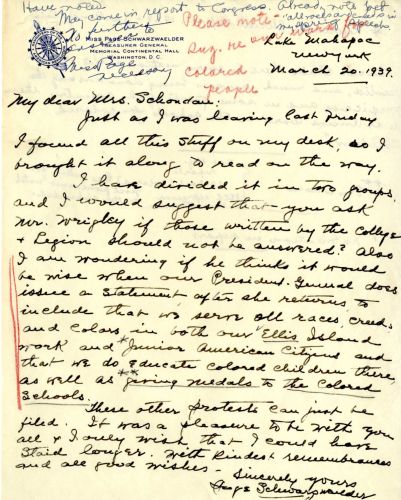 Have noted
May concern report to Congress. Already note just
No further to
Miss Page
necessary
Please note -
work for
colored
people
MISS PAGE SCHWARZWAELDER
TREASURER GENERAL
MEMORIAL CONTINENTAL HALL
WASHINGTON, D.C.
Lake Mahopac
New York
March 20. 1939.
My dear Mrs. Schondau:
Just as I was leaving last Friday
I found all this stuff on my desk, so I
brought it along to read on the way.
I have divided it in two groups
and I would suggest that you ask
Mr. Wrigley if those written by the College
+ Legion should not be answered? Also
I am wondering if he thinks it would
be wise when our President General does
issue a statement after she returns to
include that we serve all races, creeds
and colors, in both our "Ellis Island
work and * Junior American Citizens and
that we do educate colored children there,
as well as ** giving medals to the Colored
Schools.
These other protests can just be
filed. It was a pleasure to be with you
all & I only wish that I could have
staid longer. With kindest remembrances
and all good wishes -
Sincerely yours
Page Schwarzwaelder